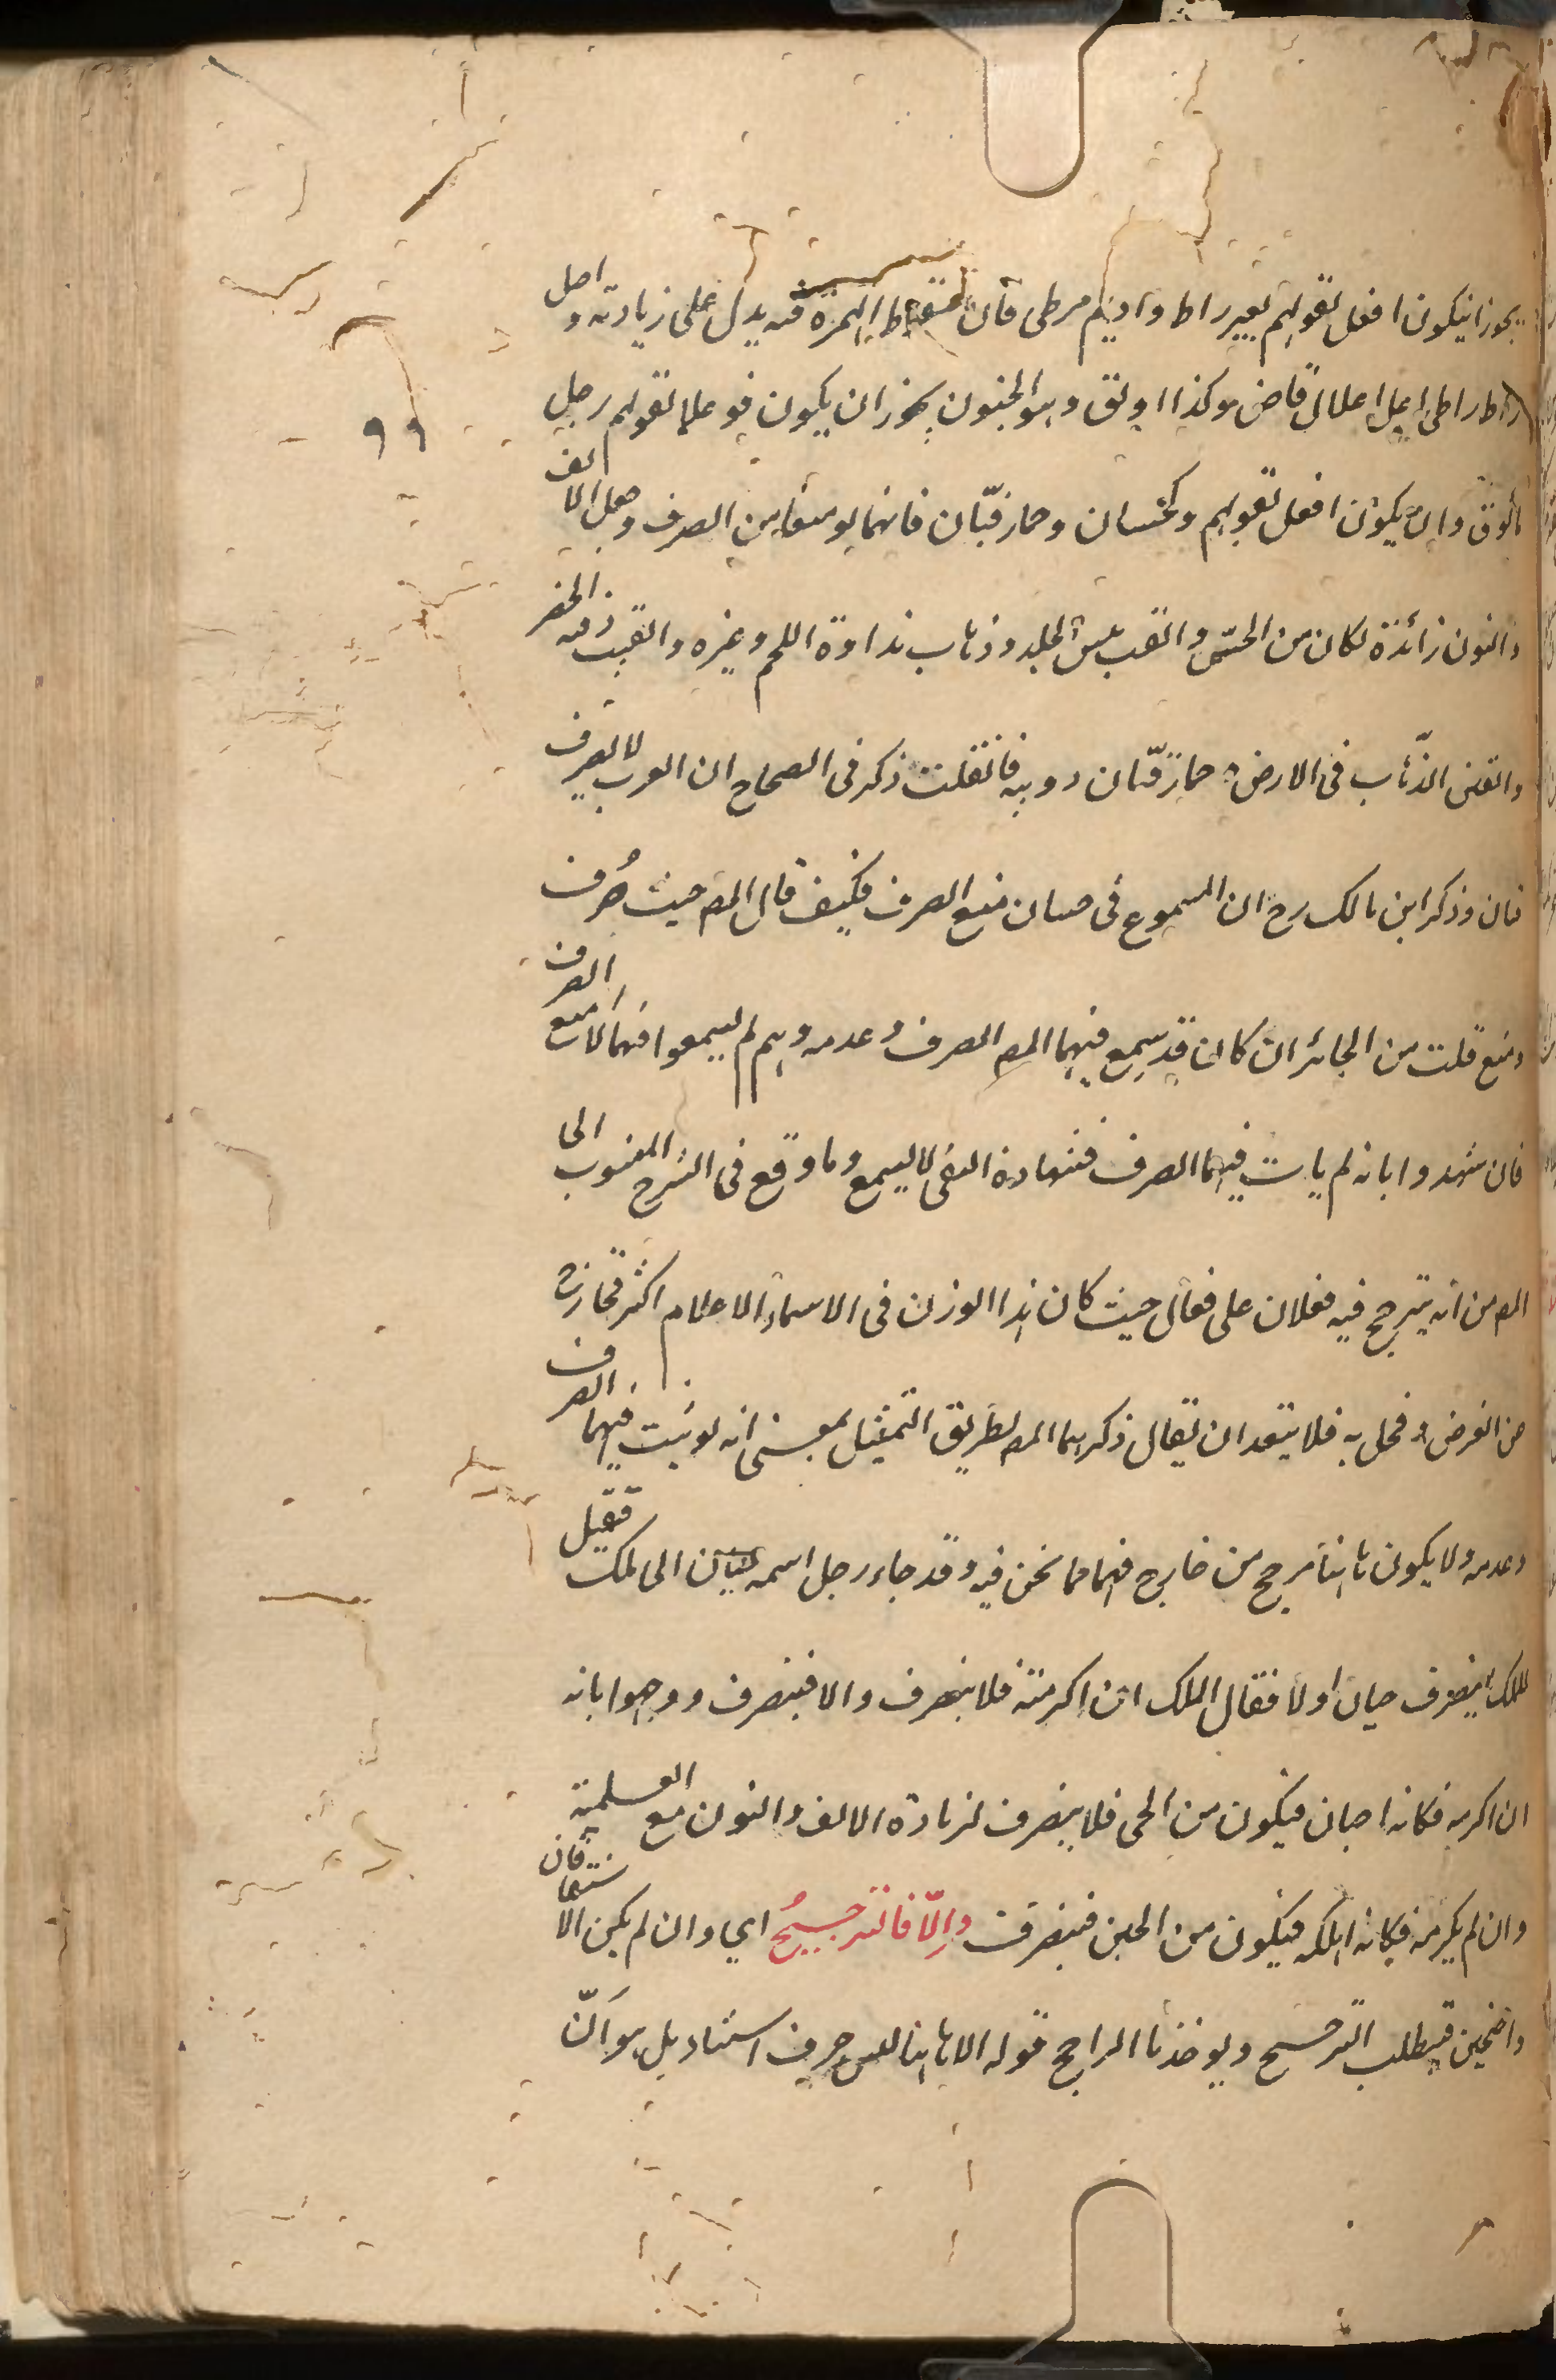 يجوز ان يكون افعل لقولهم بعير راط واديم مرطي فان سقوط الهمزة فيه يدل على زيادته واصل
راط راطي اعل اعلال قاض وكذا اولق وهو الجنون يجوز ان يكون فوعلا لقولهم رجل
مألوق وان يكون افعل لقولهم وكحسان وحمار قبّان فانهما لو منعا من الصرف وجعل الالف
والنون زائدة لكان من الحس والقب يبس الجلد وذهاب نداوة اللحم وغيره والقبب دقة الخصر
والقبن الذهاب في الارض وحمار قبّان دويبة فان قلت ذكر في الصحاح ان العرب لا تصرف
قبان وذكر ابن مالك رح ان المسموع في حسان منع الصرف فكيف قال المص حيث صُرف
ومنع قلت من الجائز ان كان قد سمع فيهما المص الصرف وعدمه وهم لم يسمعوا فيهما الا منع الصرف
فان شهدوا بانه لم يات فيهما الصرف فشهادة النفي لا يسمع وما وقع في الشرح المنسوب الى
المص من انه يترجح فيه فعلان على فعال حيث كان هذا الوزن في الاسماء الاعلام اكثر فخارج
عن الغرض ومخل به فلا يبعد ان يقال ذكرهما المص بطريق التمثيل بمعنى انه لو ثبت فيهما الصرف
وعدمه ولا يكون هاهنا مرجح من خارج فهما مما نحن فيه وقد جاء رجل اسمه حيان الى ملك فقيل
للملك اينصرف حيان او لا فقال الملك ان اكرمته فلا ينصرف والا فينصرف ووجهوا بانه
ان اكرمه فكانه احياه فيكون من الحي فلا ينصرف لزيادة الالف والنون مع العلمية
وان لم يكرمه فكانه اهلكه فيكون من الحين فينصرف وإلّا فالترجيحُ اي وان لم يكن الاشتقاقان
واضحين فيطلب الترجيح ويوخذ بالراجح قوله الا هاهنا ليس حرف استثناء بل هو انّ
٩٩